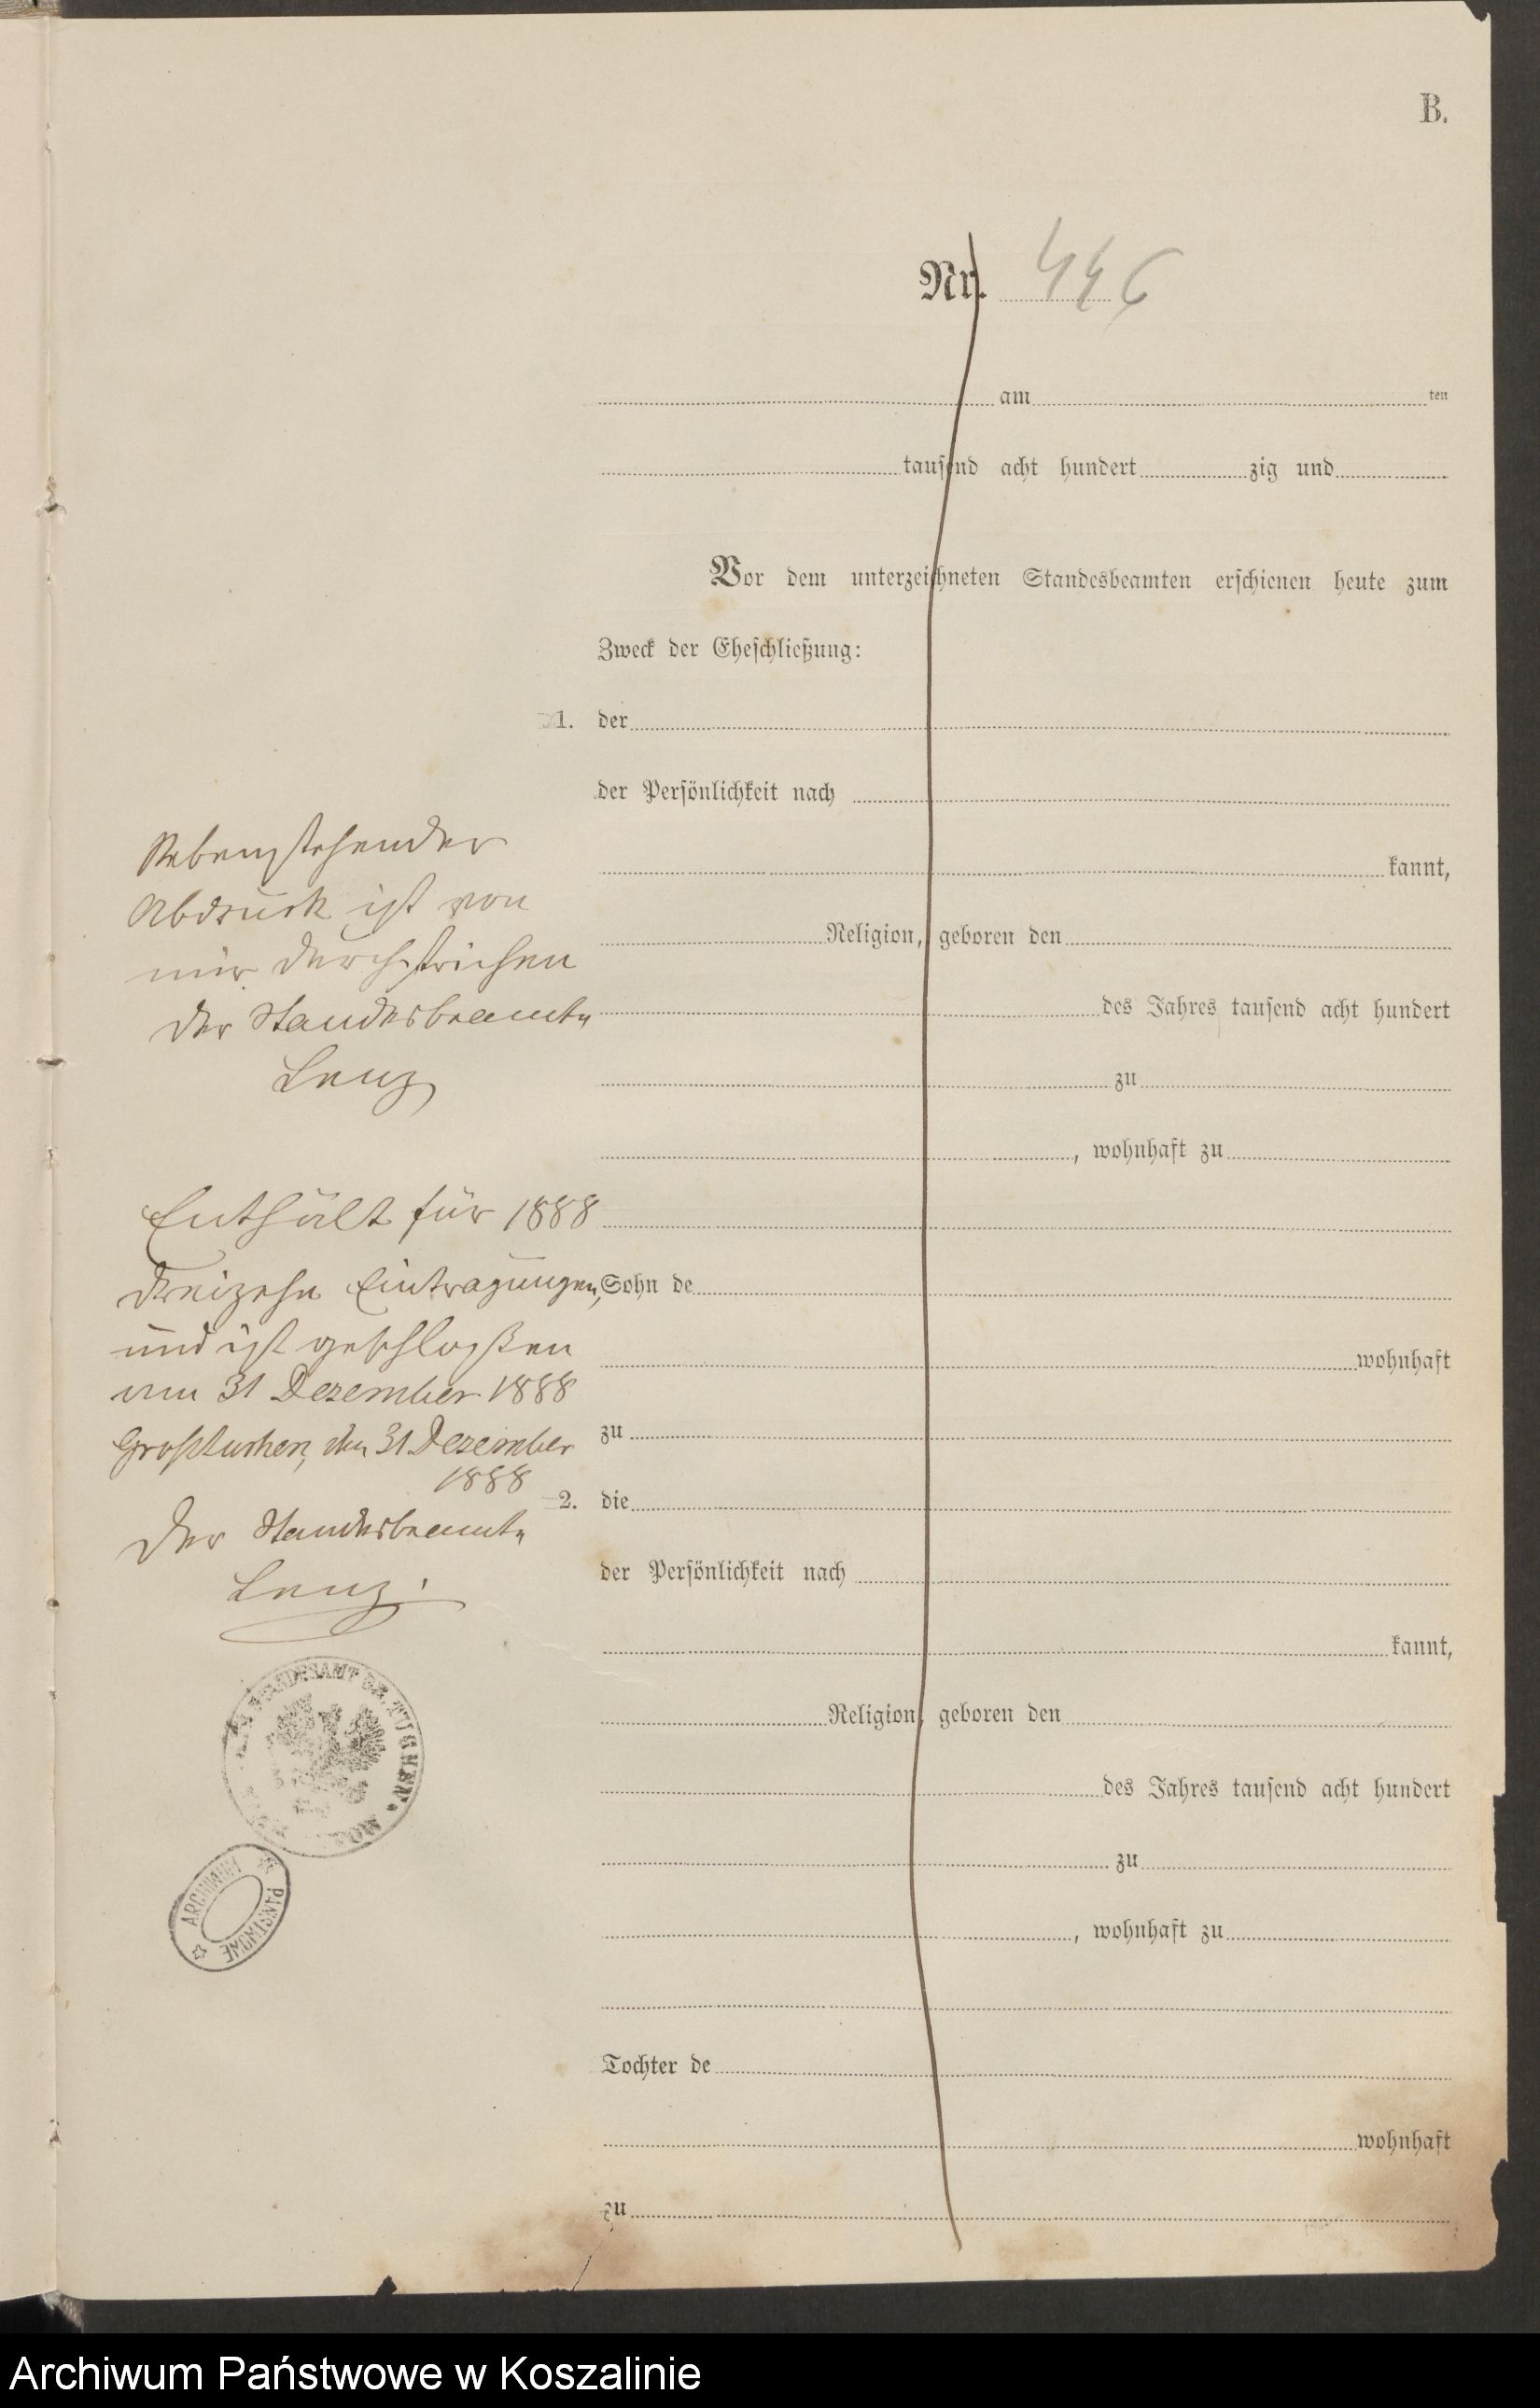 B.
Nr. 446
am ten
tausend acht hundert zig und
Vor dem unterzeichneten Standesbeamten erschienen heute zum
Zweck der Eheschließung:
1. der
der Persönlichkeit nach
kannt,
Religion, geboren den
des Jahres tausend acht hundert
zu
, wohnhaft zu
Sohn de
wohnhaft
zu
2. die
der Persönlichkeit nach
kannt,
Religion, geboren den
des Jahres tausend acht hundert
zu
, wohnhaft zu
Tochter de
wohnhaft
zu
Nebenstehender
Abdruck ist von
mir durchstrichen
Der Standesbeamte
Lenz
Enthält für 1888
dreizehn Eintragungen,
und ist geschloßen
am 31 Dezember 1888
Großtuchen, den 31 Dezember
1888
Der Standesbeamte
Lenz.
STANDESAMT GR. TUCHEN
ARCHIWUM PAŃSTWOWE
Archiwum Państwowe w Koszalinie